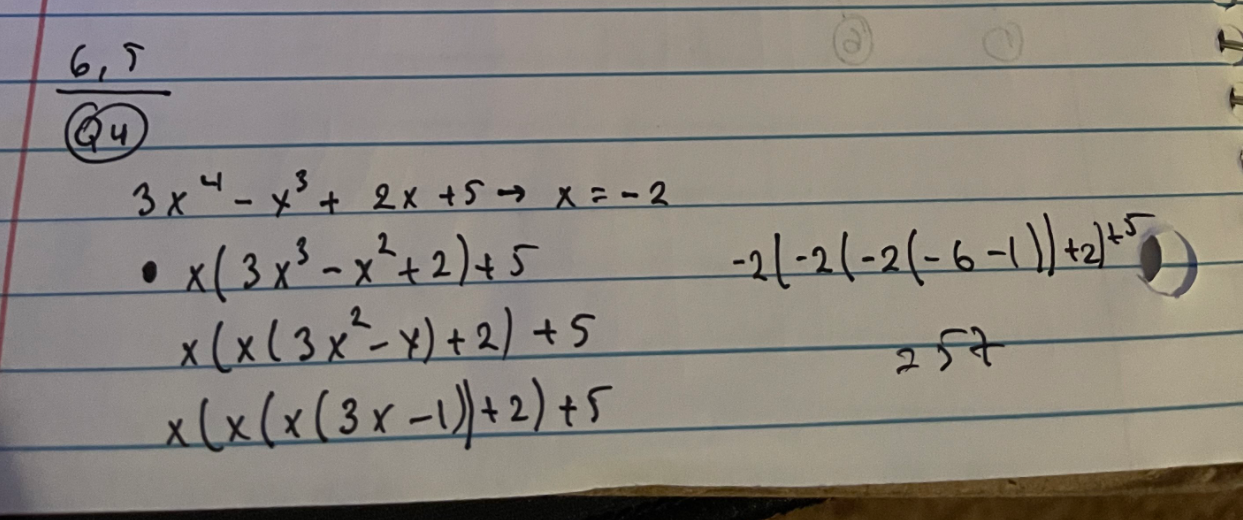 6, 5
Q4
3x⁴ - x³ + 2x + 5 → x = -2
• x(3x³ - x² + 2) + 5
x(x(3x² - x) + 2) + 5
x(x(x(3x - 1)) + 2) + 5
-2(-2(-2(-6 - 1)) + 2) + 5
257